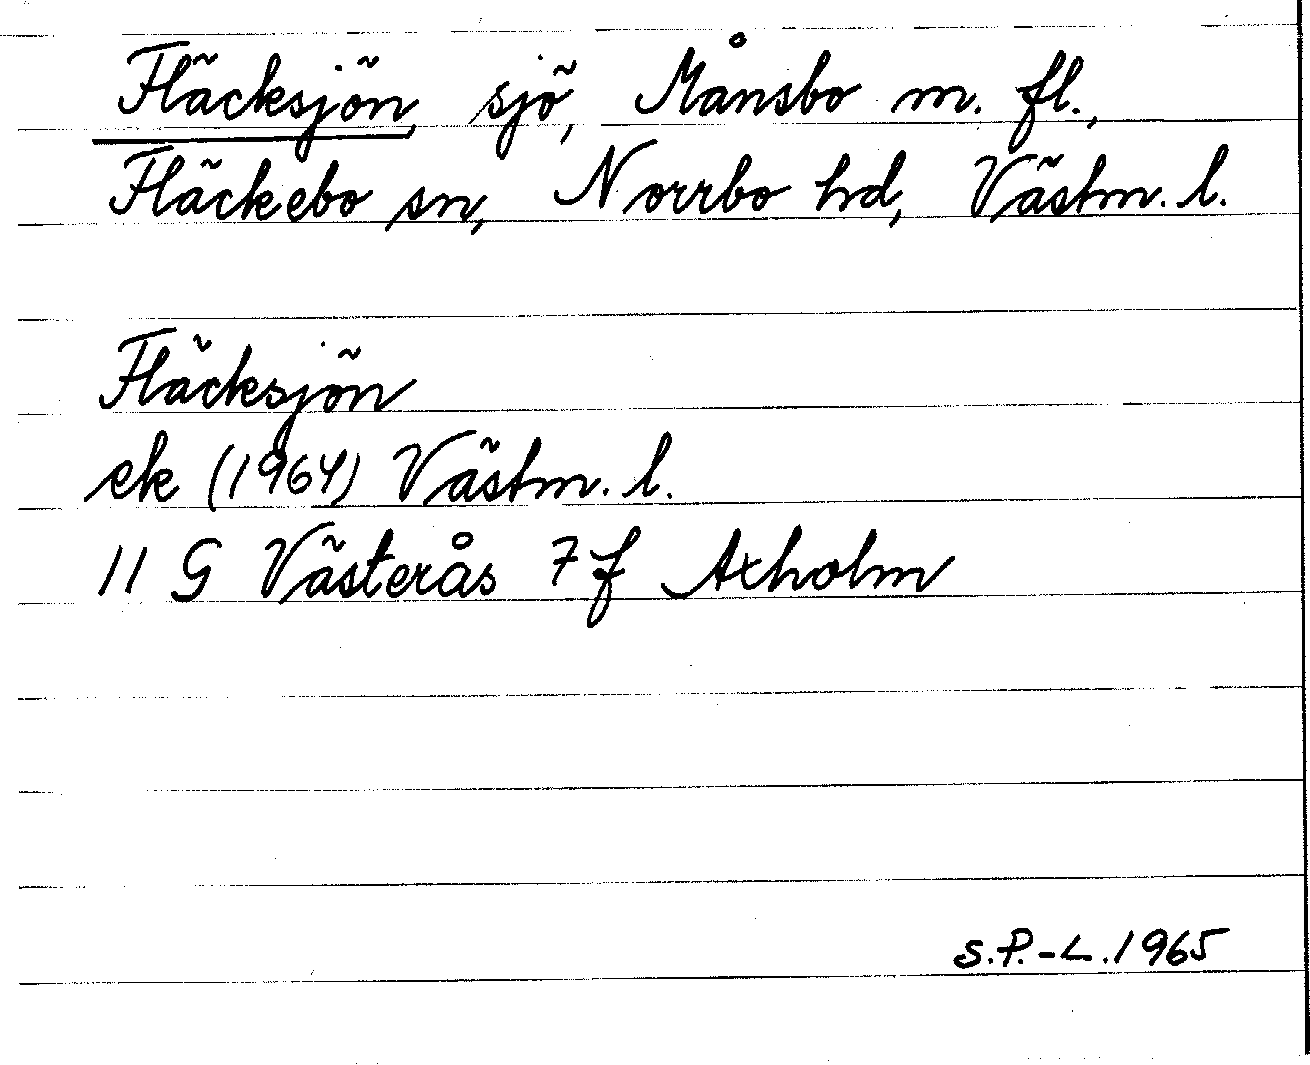 Fläcksjön, sjö, Månsbo m. fl.,
Fläckebo sn, Norrbo hd, Västm. l.
Fläcksjön
ek (1964) Västm. l.
11 G Västerås 7 f Axholm
S.P.-L. 1965